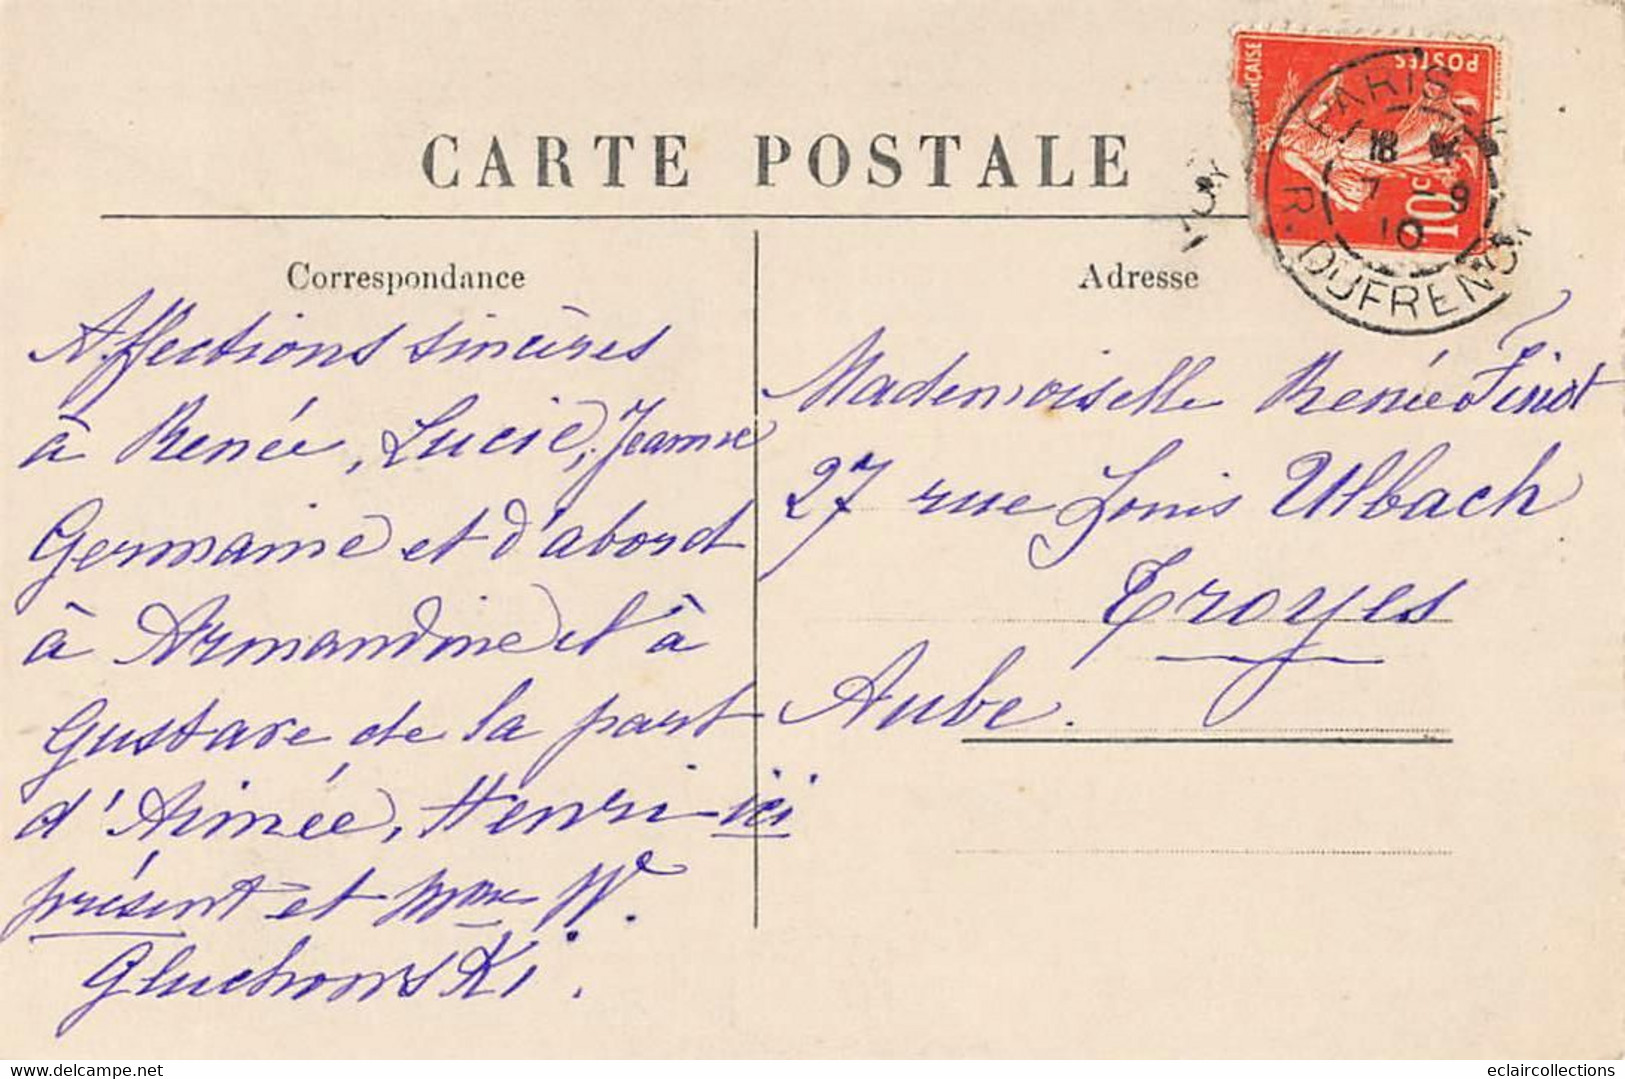 CARTE POSTALE
Correspondance
Affections sincères
à Renée, Lucie, Jeanne
Germaine et d'abord
à Armandine et à
Gustave de la part
d'Aimée, Henri ici
présent et Mme W.
Gluchowski.
Adresse
Mademoiselle Renée Finot
27 rue Louis Ulbach
Troyes
Aube.
POSTES
10c
PARIS
18
7 - 9
10
R. DUFRENOY
www.eclaircollections.delcampe.net
eclaircollections